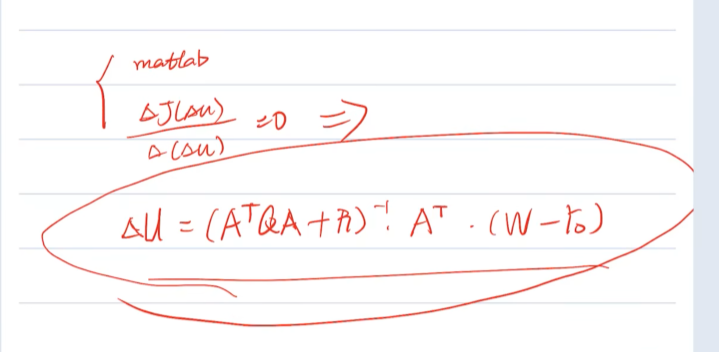 matlab
ΔJ(Δu) / Δ(Δu) = 0 ⇒
ΔU = (AᵀQA + R)⁻¹ · Aᵀ · (W − Y₀)